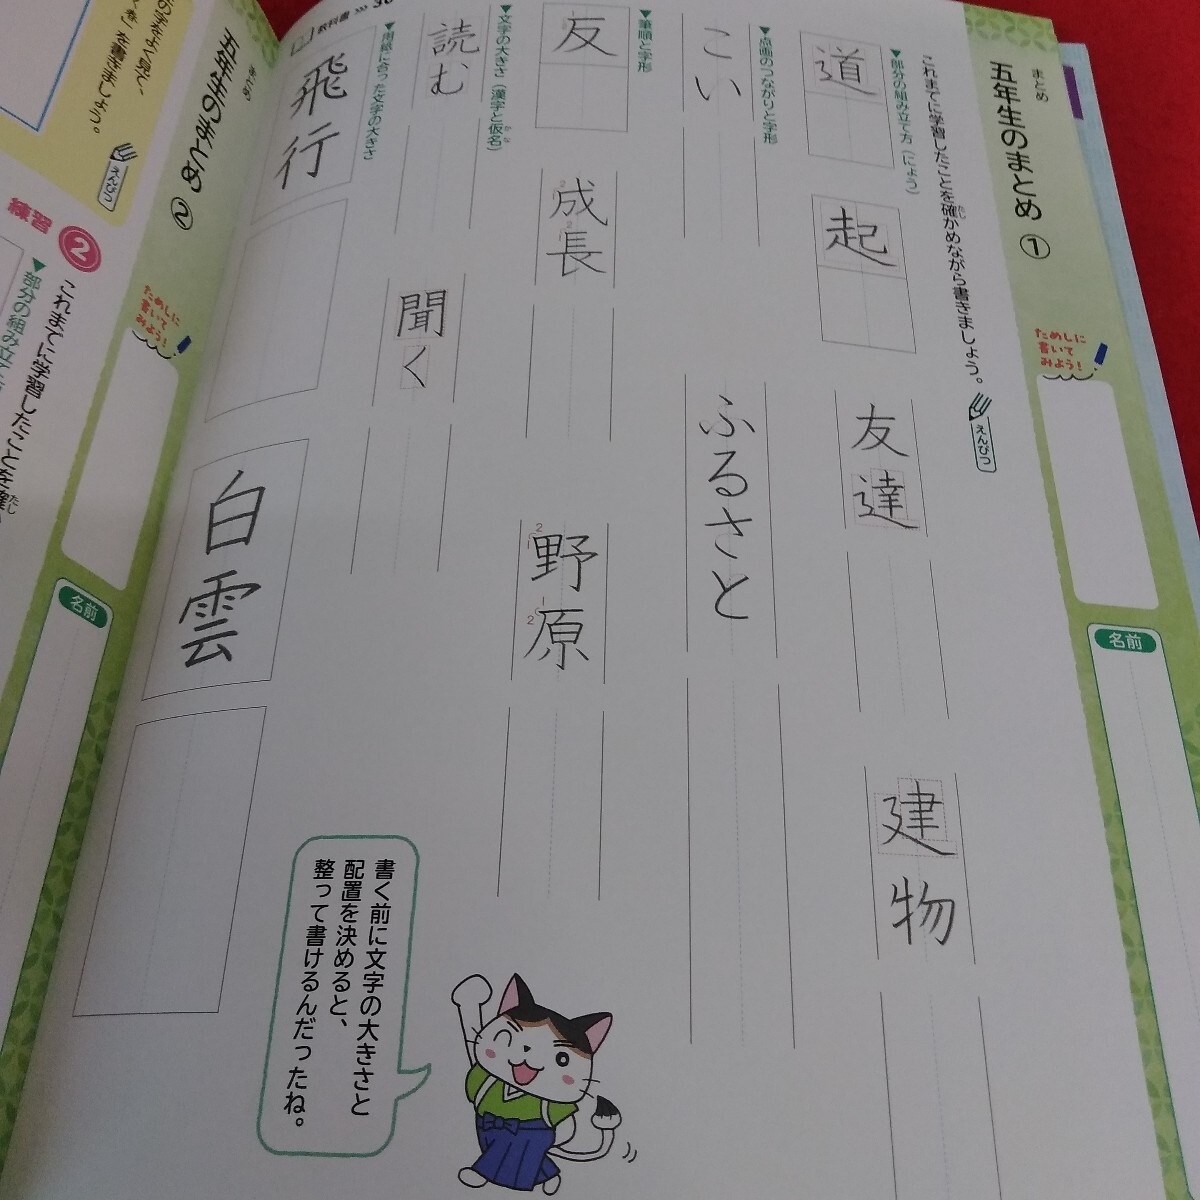 まとめ
五年生のまとめ ①
ためしに
書いて
みよう!
名前
これまでに学習したことを確かめながら書きましょう。
たし
えんぴつ
▼部分の組み立て方(にょう)
道
起
友達
建物
▼点画のつながりと字形
こい
ふるさと
▼筆順と字形
友
成長
野原
▼文字の大きさ(漢字と仮名)
かな
読む
聞く
▼用紙に合った文字の大きさ
飛行
白雲
教科書
書く前に文字の大きさと
配置を決めると、
整って書けるんだったね。
まとめ
五年生のまとめ ②
ためしに
書いて
みよう!
名前
を書きましょう。
えんぴつ
練習 2
これまでに学習したことを確
たし
▼部分の組み立て